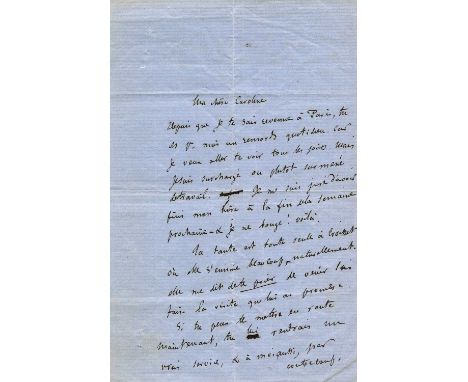 Ma chère Caroline
Depuis que je te sais revenue à Paris, tu
es pr moi un remords quotidien car
je veux aller te voir tous les jours mais
je suis surchargé ou plutôt surmené
de travail. Je me suis juré d'avoir
fini mon livre à la fin de la semaine
prochaine & je ne bouge! voilà.
Ta tante est toute seule à Croisset
où elle s'ennuie beaucoup, naturellement.
elle me dit de te prier de venir lui
faire la visite que tu lui as promise.
Si tu peux te mettre en route
maintenant, tu lui rendrais un
vrai service, & à moi aussi, par
contrecoup.